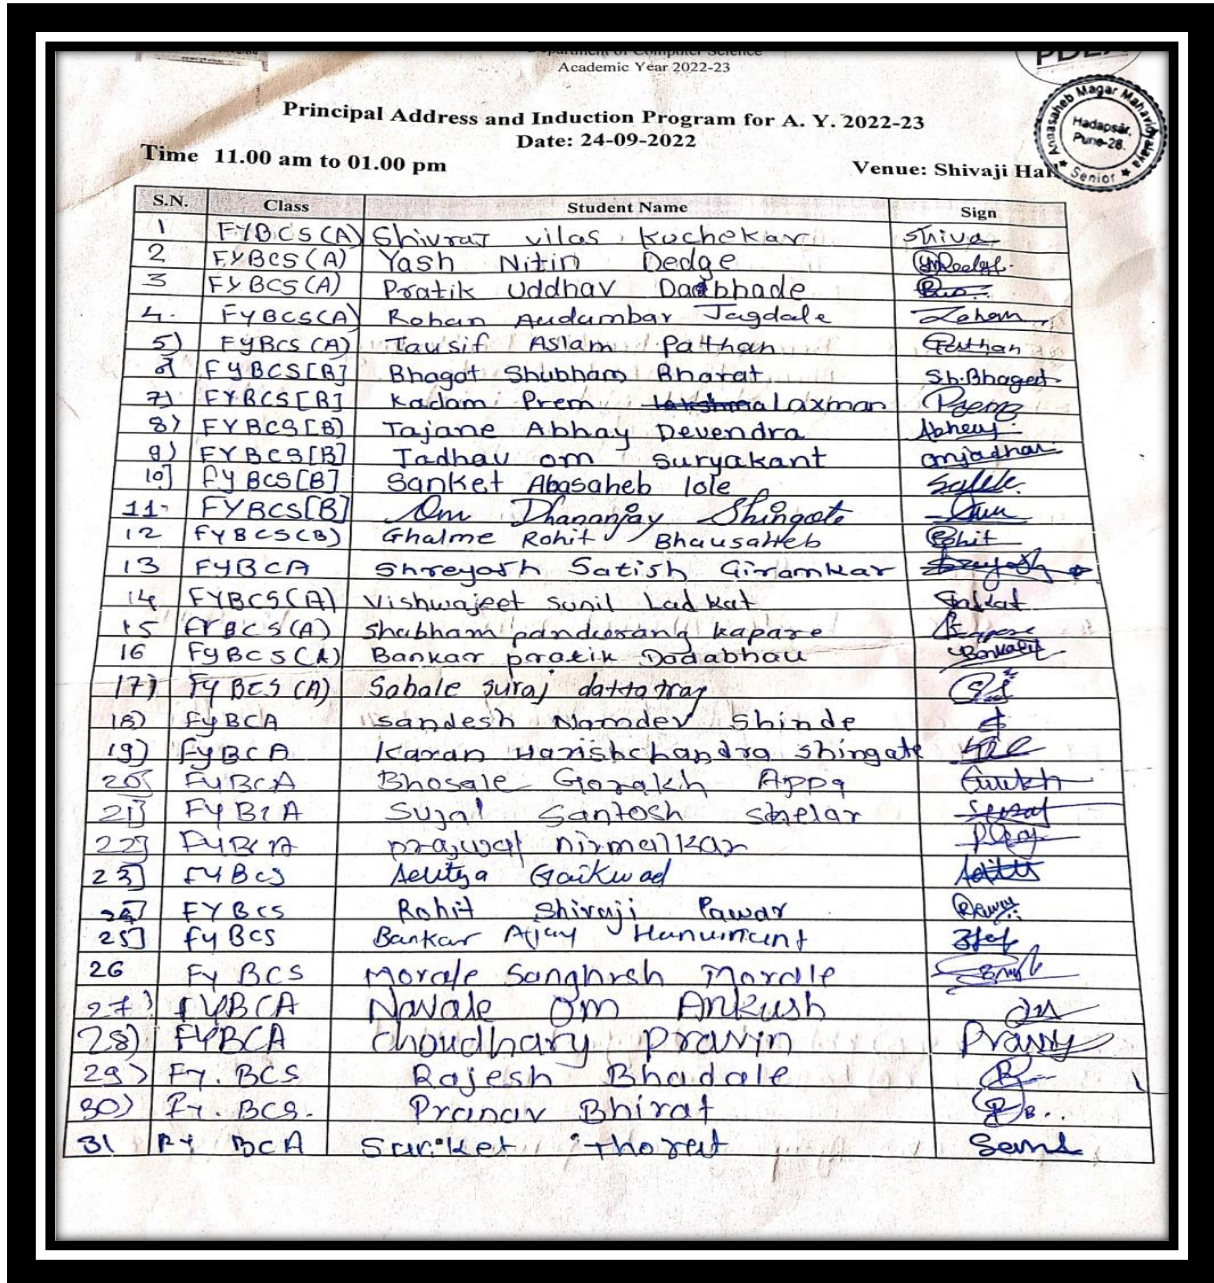 Department of Computer Science
Academic Year 2022-23
PDEA
Annasaheb Magar Mahavidyalaya
Hadapsar,
Pune-28.
Senior
Principal Address and Induction Program for A. Y. 2022-23
Date: 24-09-2022
Time 11.00 am to 01.00 pm Venue: Shivaji Hal
S.N. Class Student Name Sign
1 FYBCS(A) Shivraj vilas Kuchekar Shiva
2 F.Y.BCS(A) Yash Nitin Dedge
3 FYBCS(A) Pratik Uddhav Dadbhade
4. FYBCS(A) Rohan Audumbar Jagdale
5) FYBCS(A) Tausif Aslam Pathan Pathan
6 FYBCS[B] Bhagat Shubham Bharat Sh.Bhagat
7) FYBCS[B] Kadam Prem Laxman Prem
8) FYBCS[B) Tajane Abhay Devendra Abhay
9) FYBCS[B] Jadhav om Suryakant omjadhav
10] FYBCS[B] Sanket Abasaheb lole
11. FYBCS[B] Om Dhananjay Shingote
12 FYBCS(B) Ghalme Rohit Bhausaheb Rohit
13 FYBCA Shreyash Satish Giramkar
14 FYBCS(A) Vishwajeet Sunil Ladkat
15 FYBCS(A) Shubham pandurang kapare
16 FYBCS(A) Bankar pratik Dadabhau
17) FYBCS(A) Sabale suraj dattatray
18) FYBCA Sandesh Namdev Shinde
19) FYBCA Karan Harishchandra Shingate
20) FYBCA Bhosale Gorakh Appa
21) FYBCA Sujal Santosh Shelar
22] FYBCA prajwal nirmalkar
23] FYBCS Aditya Gaikwad
24] FYBCS Rohit Shivaji Pawar
25] FYBCS Bankar Ajay Hanumant
26 FY BCS Morale Sangharsh Morale
27) FYBCA Navale Om Ankush
28) FYBCA Choudhary Pravin
29) FY. BCS Rajesh Bhadale
30) FY. BCS. Pranav Bhirat
31 FY BCA Sanket Thorat